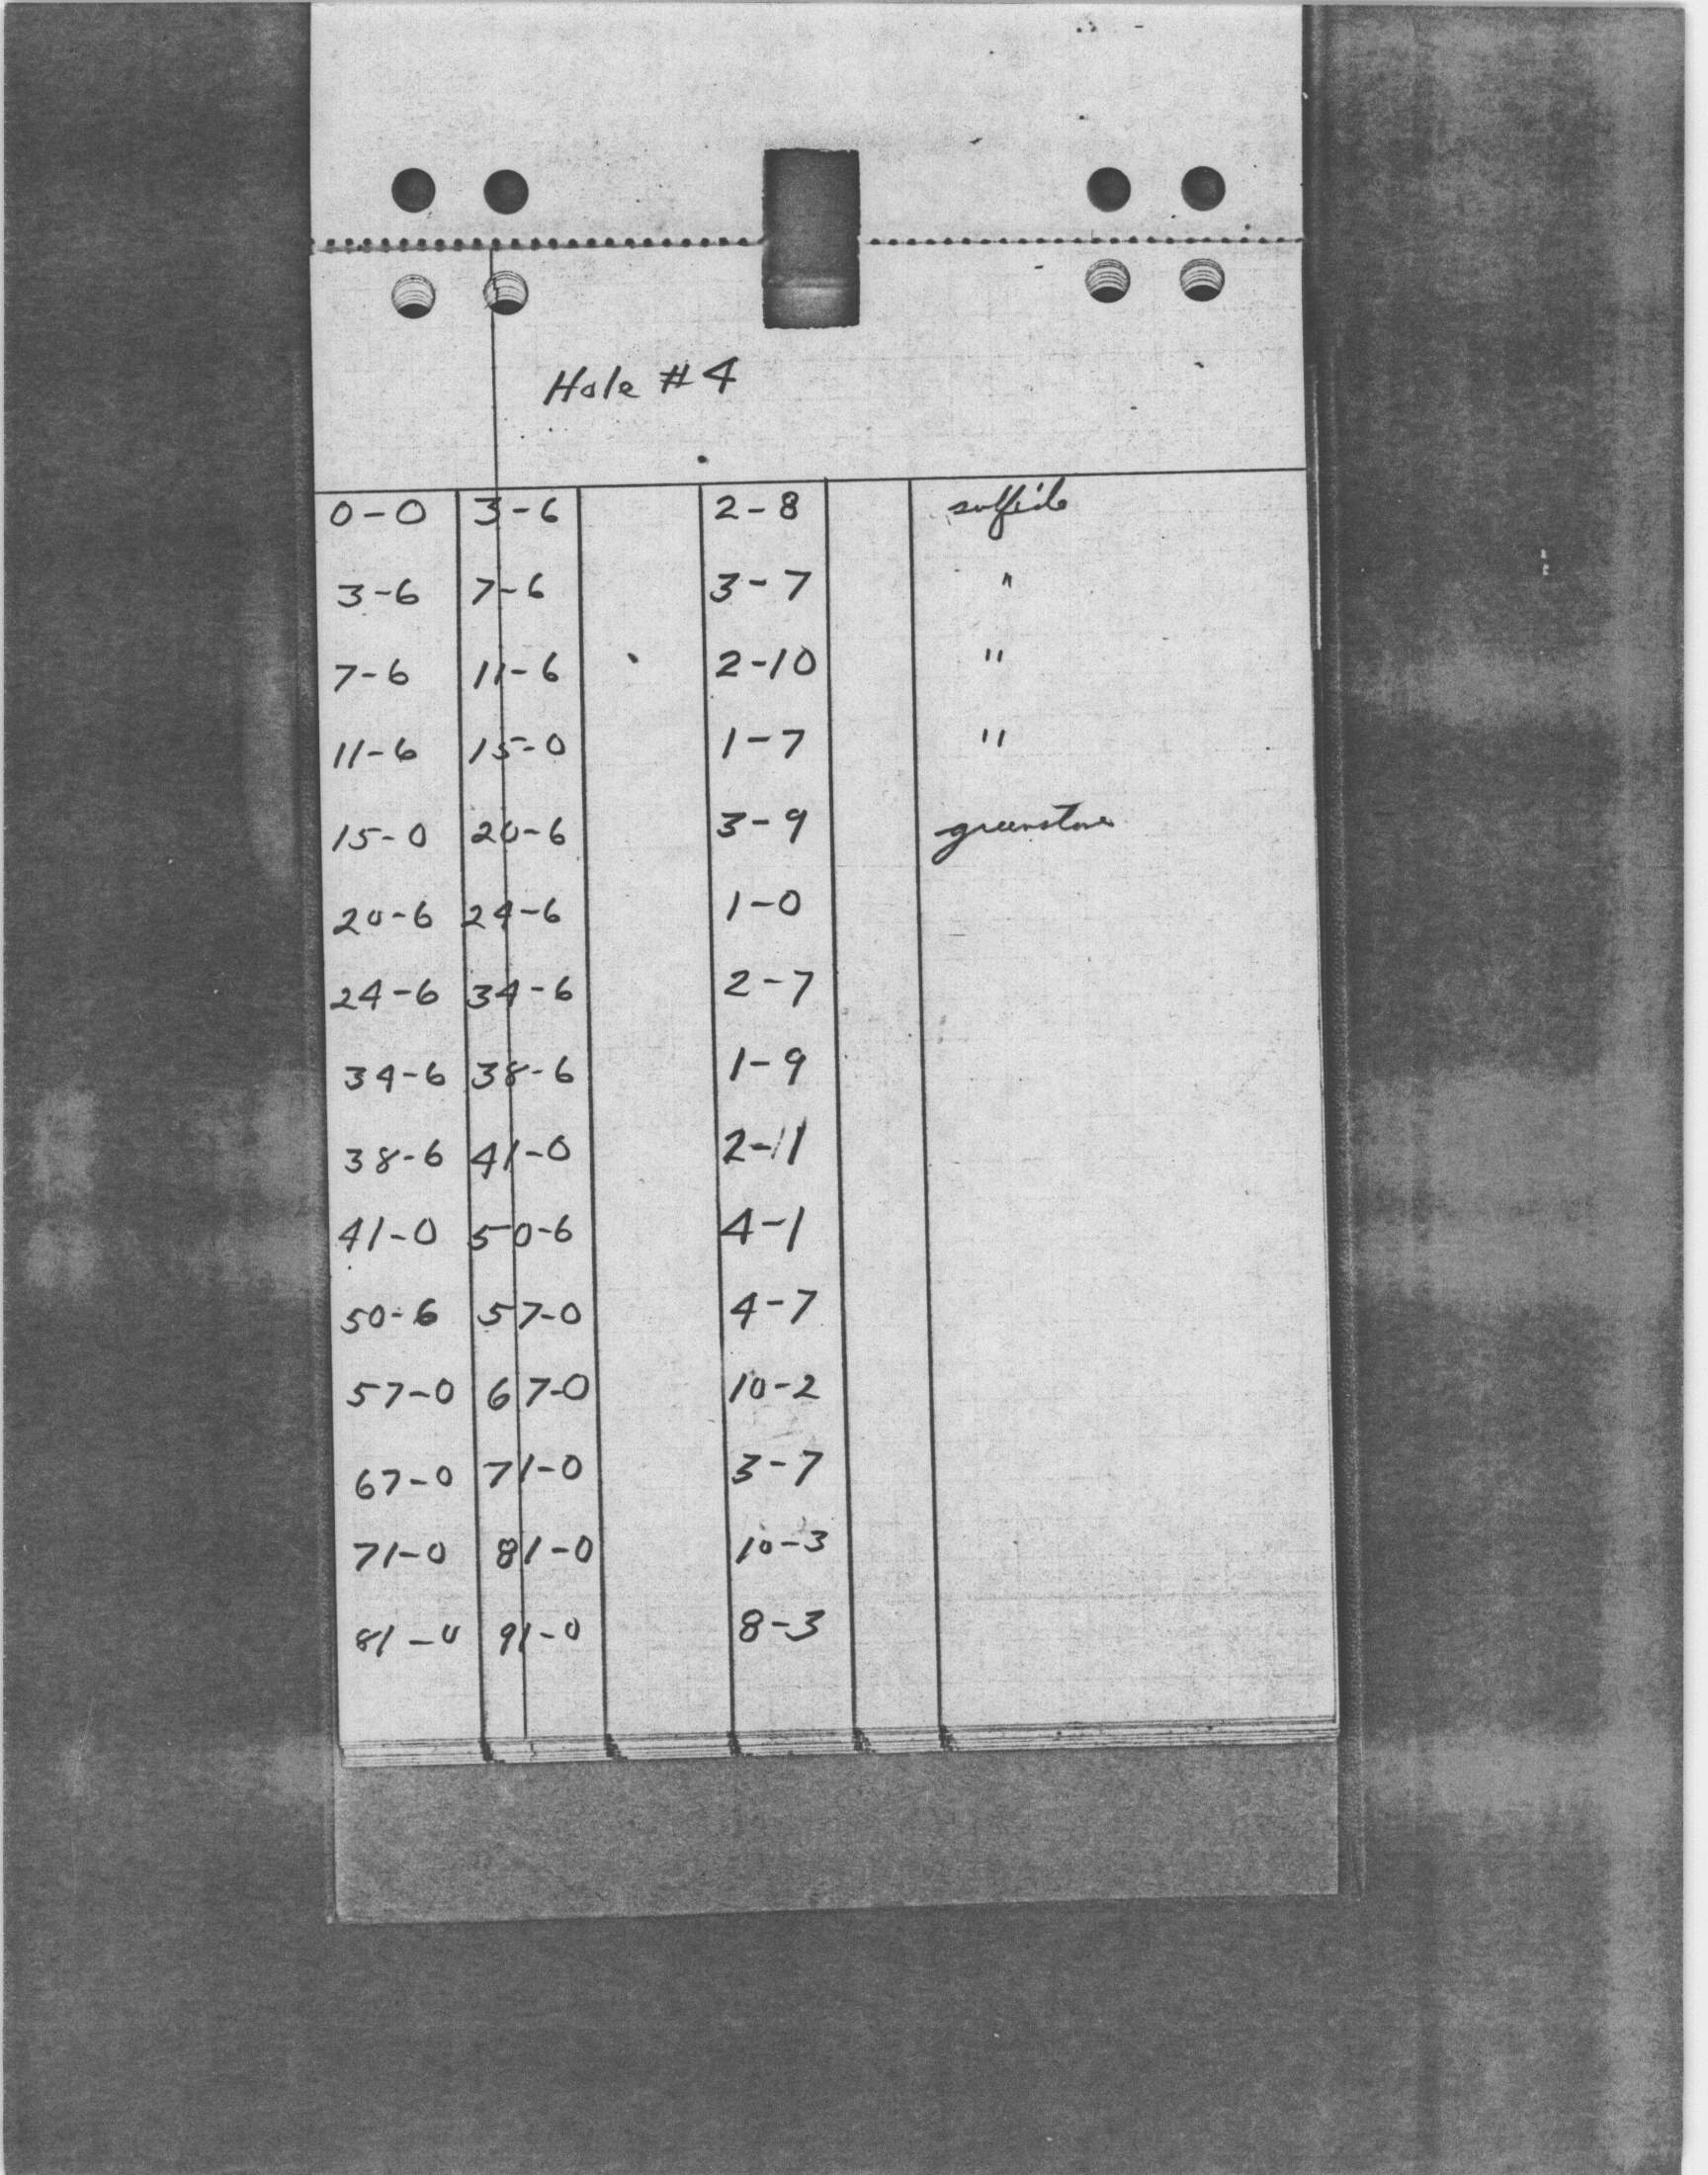 Hole #4
0-0 3-6 2-8 sulfide
3-6 7-6 3-7 "
7-6 11-6 2-10 "
11-6 15-0 1-7 "
15-0 20-6 3-9 greenstone
20-6 24-6 1-0
24-6 34-6 2-7
34-6 38-6 1-9
38-6 41-0 2-11
41-0 50-6 4-1
50-6 57-0 4-7
57-0 67-0 10-2
67-0 71-0 3-7
71-0 81-0 10-3
81-0 91-0 8-3